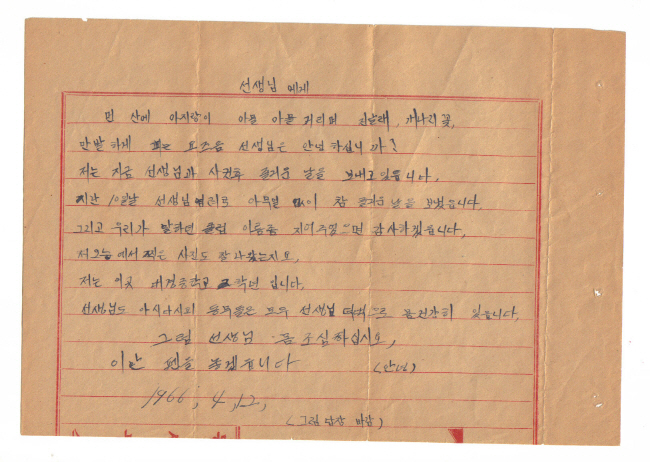 선생님 에게
먼 산에 아지랑이 아물 아물 거리며 진달래, 개나리 꽃,
만발 하게 피는 요즈음 선생님은 안녕 하십니까?
저는 지금 선생님과 사귄후 즐거운 날을 보내고 있읍니다.
지난 10일날 선생님 아무일 없이 참 즐거운 날을 보냈읍니다.
그리고 우리가 말하던 클럽 이름을 지어주셨으면 감사하겠읍니다.
서오능에서 찍은 사진도 잘 나왔는지요,
저는 이곳 2학년 입니다.
선생님도 아시다시피 모두 선생님 덕택으로 몸건강히 있읍니다,
그럼 선생님 몸 조심 하십시오,
이만 펜을 놓겠읍니다 (안녕)
1966, 4, 12,
(그럼 답장 바람)